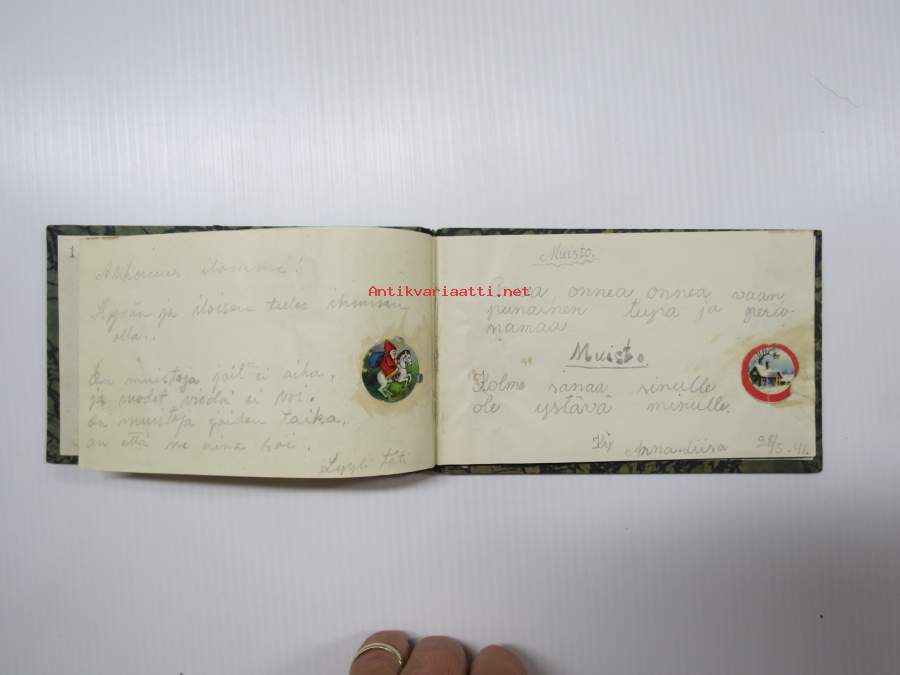 1
ilosanne!
Hyvän ja iloisen tulee ihmisen
olla..
On muistoja joit' ei aika,
ja vuodet viedä ei voi.
on muistoja joiden taika,
on että ne aina soi.
Lyyli täti
Muisto.
onnea onnea vaan,
punainen tupa ja peru-
namaa
Muisto.
Kolme sanaa sinulle
ole ystävä minulle.
Anna-Liisa 28/5.-41.
Antikvariaatti.net